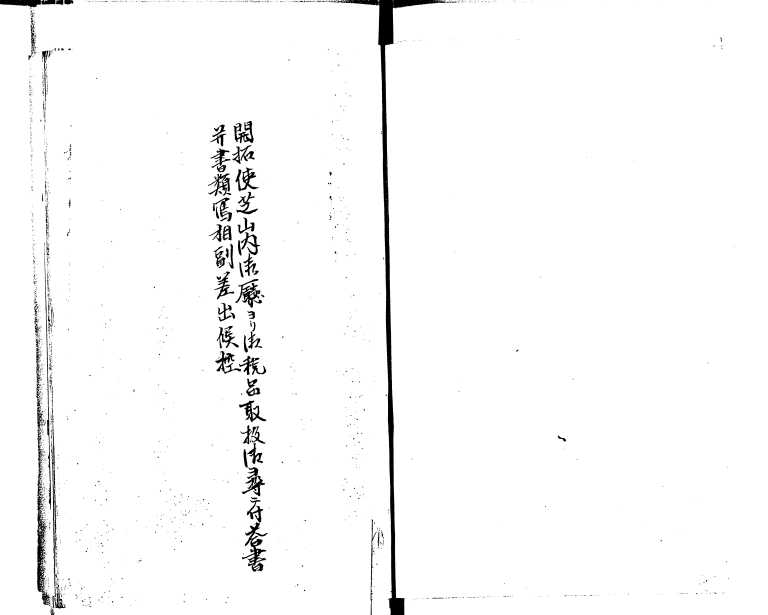 開拓使芝山内御廳ヨリ御税品取扱御尋ニ付答書
并書類写相副差出候控